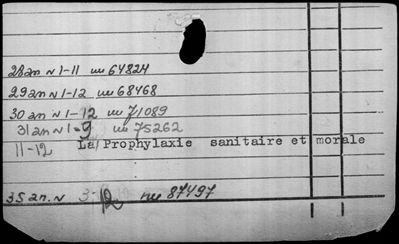 28 an N 1-11 ин 64824
29 an N 1-12 ин 68468
30 an N 1-12 ин 71089
31 an N 1-9 ин 75262
11-12 La Prophylaxie sanitaire et morale
35 an. N 3-12 ин 87497